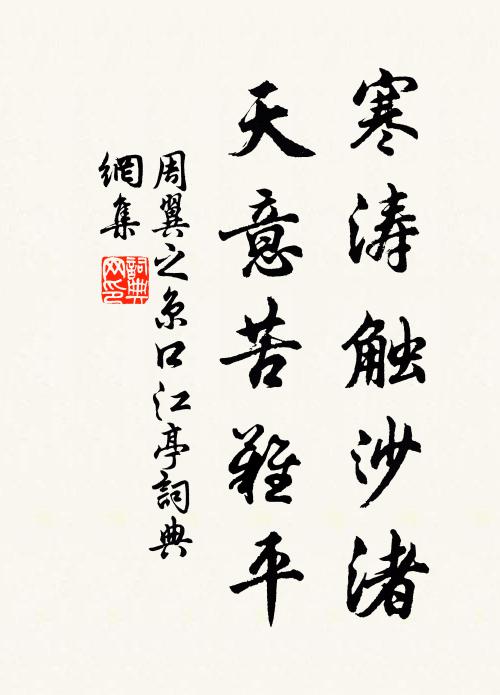 寒涛触沙渚
天意苦難平
周翼之京口江亭詞典
網集
詞典网印